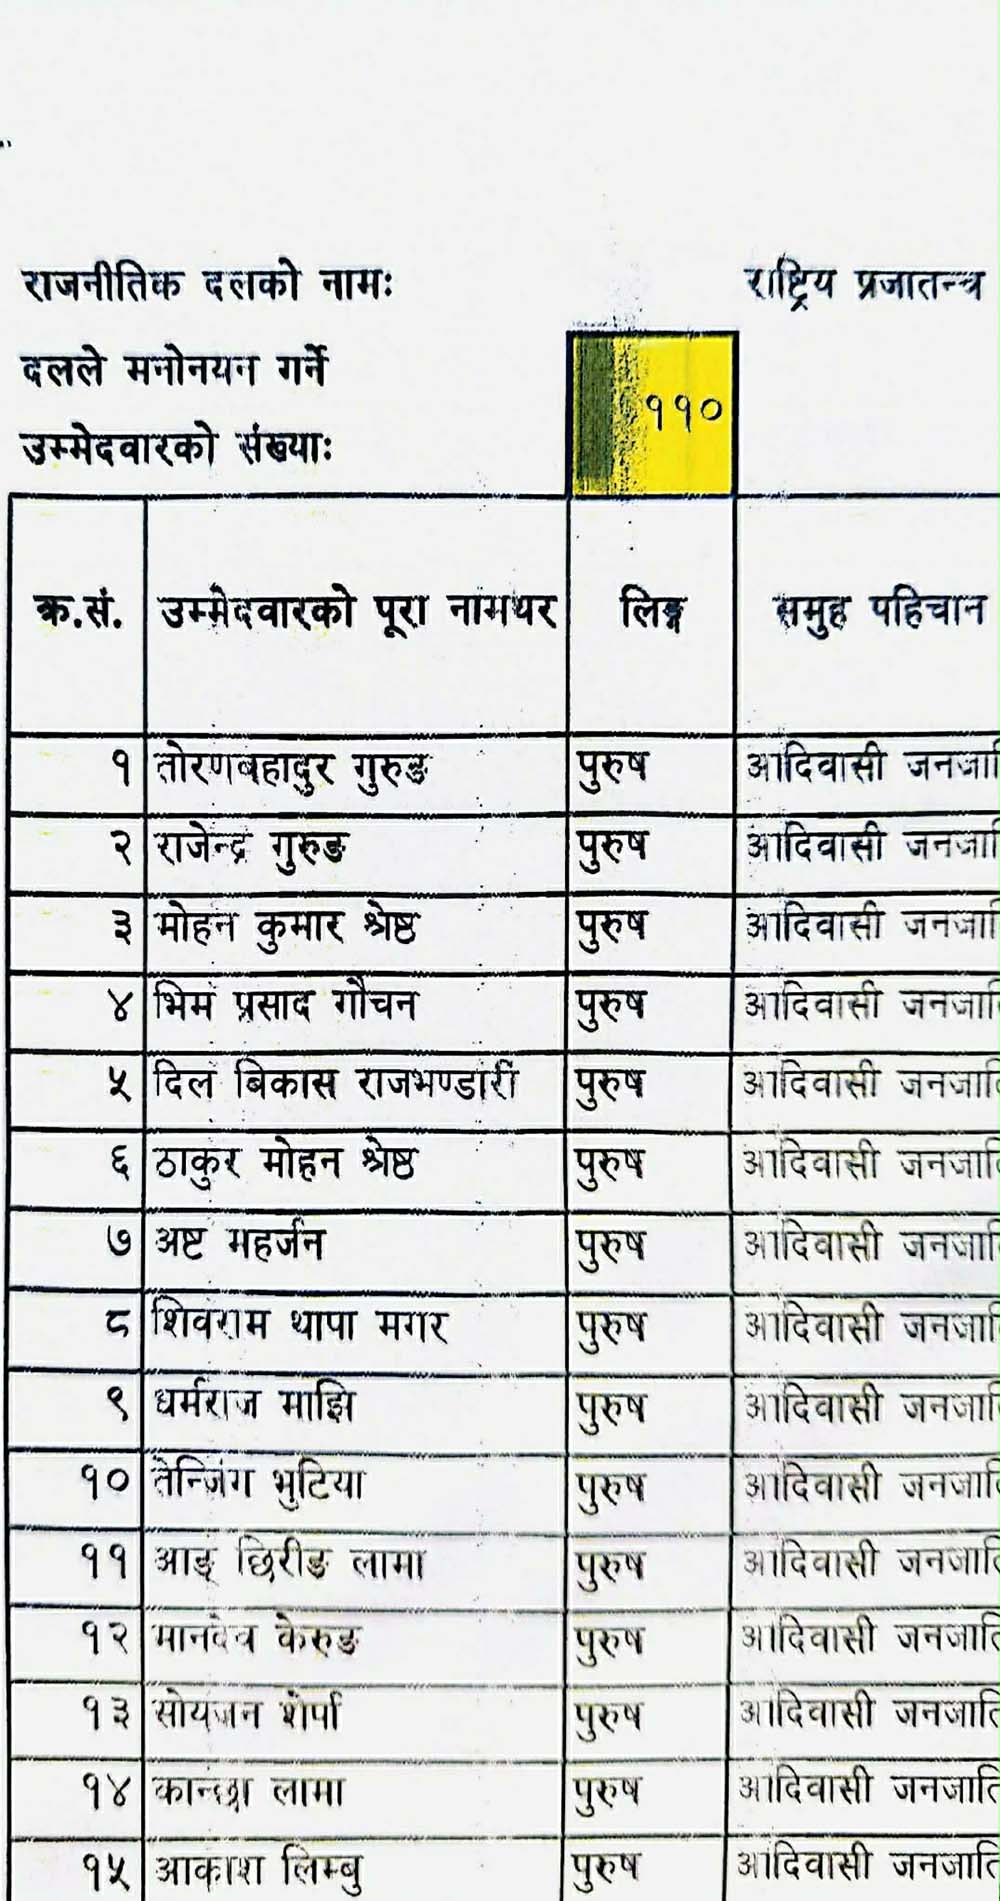 राजनीतिक दलको नामः राष्ट्रिय प्रजातन्त्र
दलले मनोनयन गर्ने
११०
उम्मेदवारको संख्याः
क्र.सं. उम्मेदवारको पूरा नामथर लिङ्ग समुह पहिचान
१ तोरणबहादुर गुरुङ पुरुष आदिवासी
२ राजेन्द्र गुरुङ पुरुष आदिवासी
३ मोहन कुमार श्रेष्ठ पुरुष आदिवासी
४ भिम प्रसाद गौचन पुरुष आदिवासी
५ दिल बिकास राजभण्डारी पुरुष आदिवासी
६ ठाकुर मोहन श्रेष्ठ पुरुष आदिवासी
७ अष्ट महर्जन पुरुष आदिवासी
८ शिवराम थापा मगर पुरुष आदिवासी
९ धर्मराज माझि पुरुष आदिवासी
१० तेन्जिंग भुटिया पुरुष आदिवासी
११ आङ् छिरीङ लामा पुरुष आदिवासी
१२ केरुङ पुरुष आदिवासी
१३ शेर्पा पुरुष आदिवासी
१४ कान्छा लामा पुरुष आदिवासी
१५ आकाश लिम्बु पुरुष आदिवासी